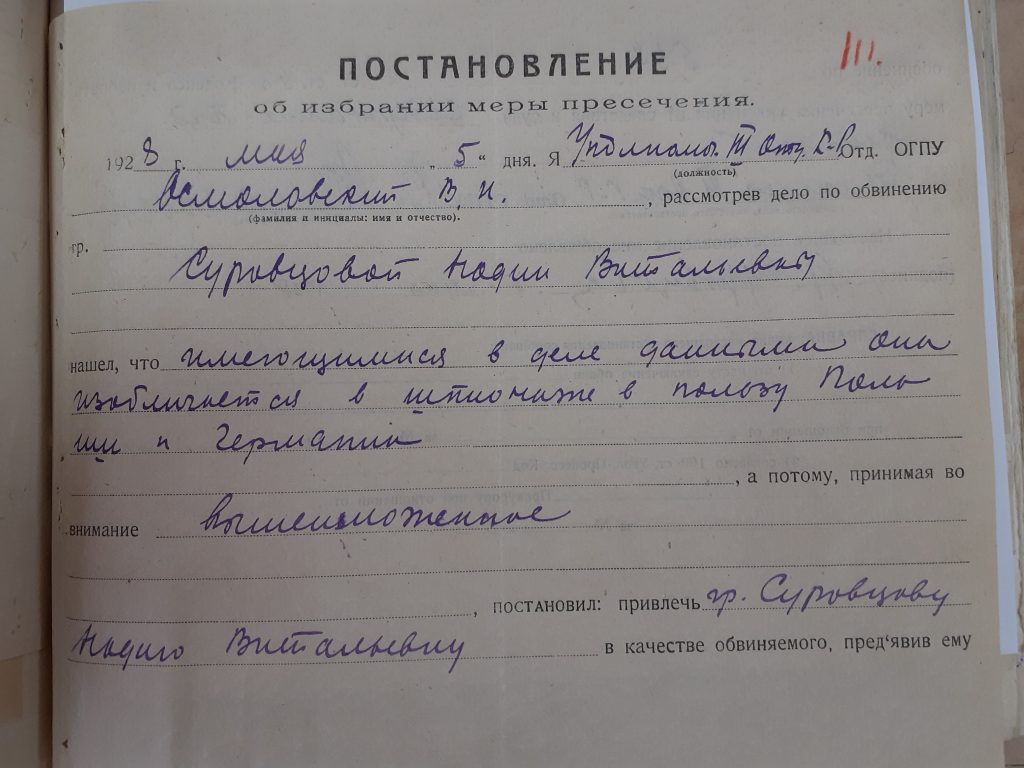 III.
ПОСТАНОВЛЕНИЕ
об избрании меры пресечения.
1928 г. мая „ 5 “ дня. Я Уполномы. III Отд. К-Р Отд. ОГПУ
(должность)
Осмоловский В. И. , рассмотрев дело по обвинению
(фамилия и инициалы: имя и отчество).
гр.
Суровцовой Надии Витальевны
нашел, что имеющимися в деле данными она
изобличается в шпионаже в пользу Поль
ши и Германии
, а потому, принимая во
внимание вышеизложенное
, постановил: привлечь гр. Суровцову
Надию Витальевну в качестве обвиняемого, пред‘явив ему